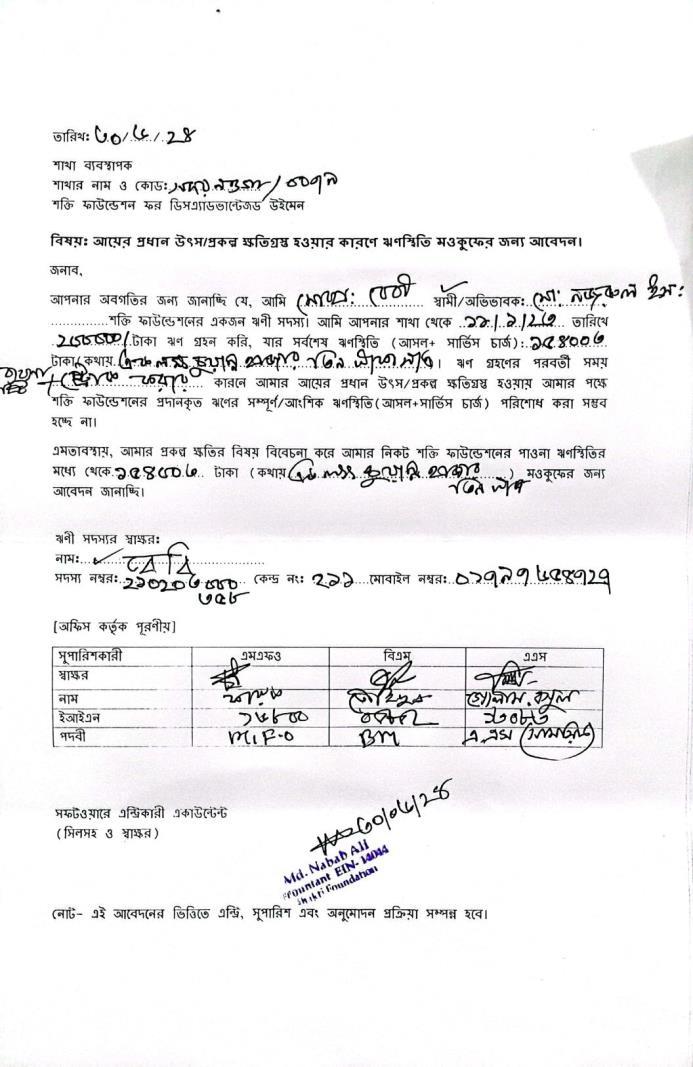 তারিখ: ৩০/৬/২৪
শাখা ব্যবস্থাপক
শাখার নাম ও কোড:
শক্তি ফাউন্ডেশন ফর ডিসএ্যাডভান্টেজড উইমেন
বিষয়: আয়ের প্রধান উৎস/প্রকল্প ক্ষতিগ্রস্থ হওয়ার কারণে ঋণস্থিতি মওকুফের জন্য আবেদন।
জনাব,
আপনার অবগতির জন্য জানাচ্ছি যে, আমি মোছা: বেবী স্বামী/অভিভাবক: মো: নজরুল ইস:
শক্তি ফাউন্ডেশনের একজন ঋণী সদস্য। আমি আপনার শাখা থেকে ১১/১/২৩ তারিখে
২৫০০০০/ টাকা ঋণ গ্রহন করি, যার সর্বশেষ ঋণস্থিতি (আসল+ সার্ভিস চার্জ): ১৫৪০০৬
টাকা(কথায় এক লক্ষ চুয়ান্ন হাজার। ঋণ গ্রহণের পরবর্তী সময়
স্ট্রোক করায় কারনে আমার আয়ের প্রধান উৎস/প্রকল্প ক্ষতিগ্রস্থ হওয়ায় আমার পক্ষে
শক্তি ফাউন্ডেশনের প্রদানকৃত ঋণের সম্পূর্ণ/আংশিক ঋণস্থিতি(আসল+সার্ভিস চার্জ) পরিশোধ করা সম্ভব
হচ্ছে না।
এমতাবস্থায়, আমার প্রকল্প ক্ষতির বিষয় বিবেচনা করে আমার নিকট শক্তি ফাউন্ডেশনের পাওনা ঋণস্থিতির
মধ্যে থেকে ১৫৪০০৬ টাকা (কথায় এক লক্ষ চুয়ান্ন হাজার) মওকুফের জন্য
আবেদন জানাচ্ছি।
ঋণী সদস্যর স্বাক্ষর:
নাম: বেবি
সদস্য নম্বর: কেন্দ্র নং: ২১১ মোবাইল নম্বর:
[অফিস কর্তৃক পূরণীয়]
সুপারিশকারী এমএফও বিএম এএস
স্বাক্ষর
নাম গোলাম রসুল
ইআইএন
পদবী M.F.O BM এ.এস
সফটওয়ারে এন্ট্রিকারী একাউন্টেন্ট
(সিলসহ ও স্বাক্ষর)
৩০/০৬/২৪
Md. Nabab Ali
ccountant EIN- 14044
Shakti Foundation
নোট- এই আবেদনের ভিত্তিতে এন্ট্রি, সুপারিশ এবং অনুমোদন প্রক্রিয়া সম্পন্ন হবে।